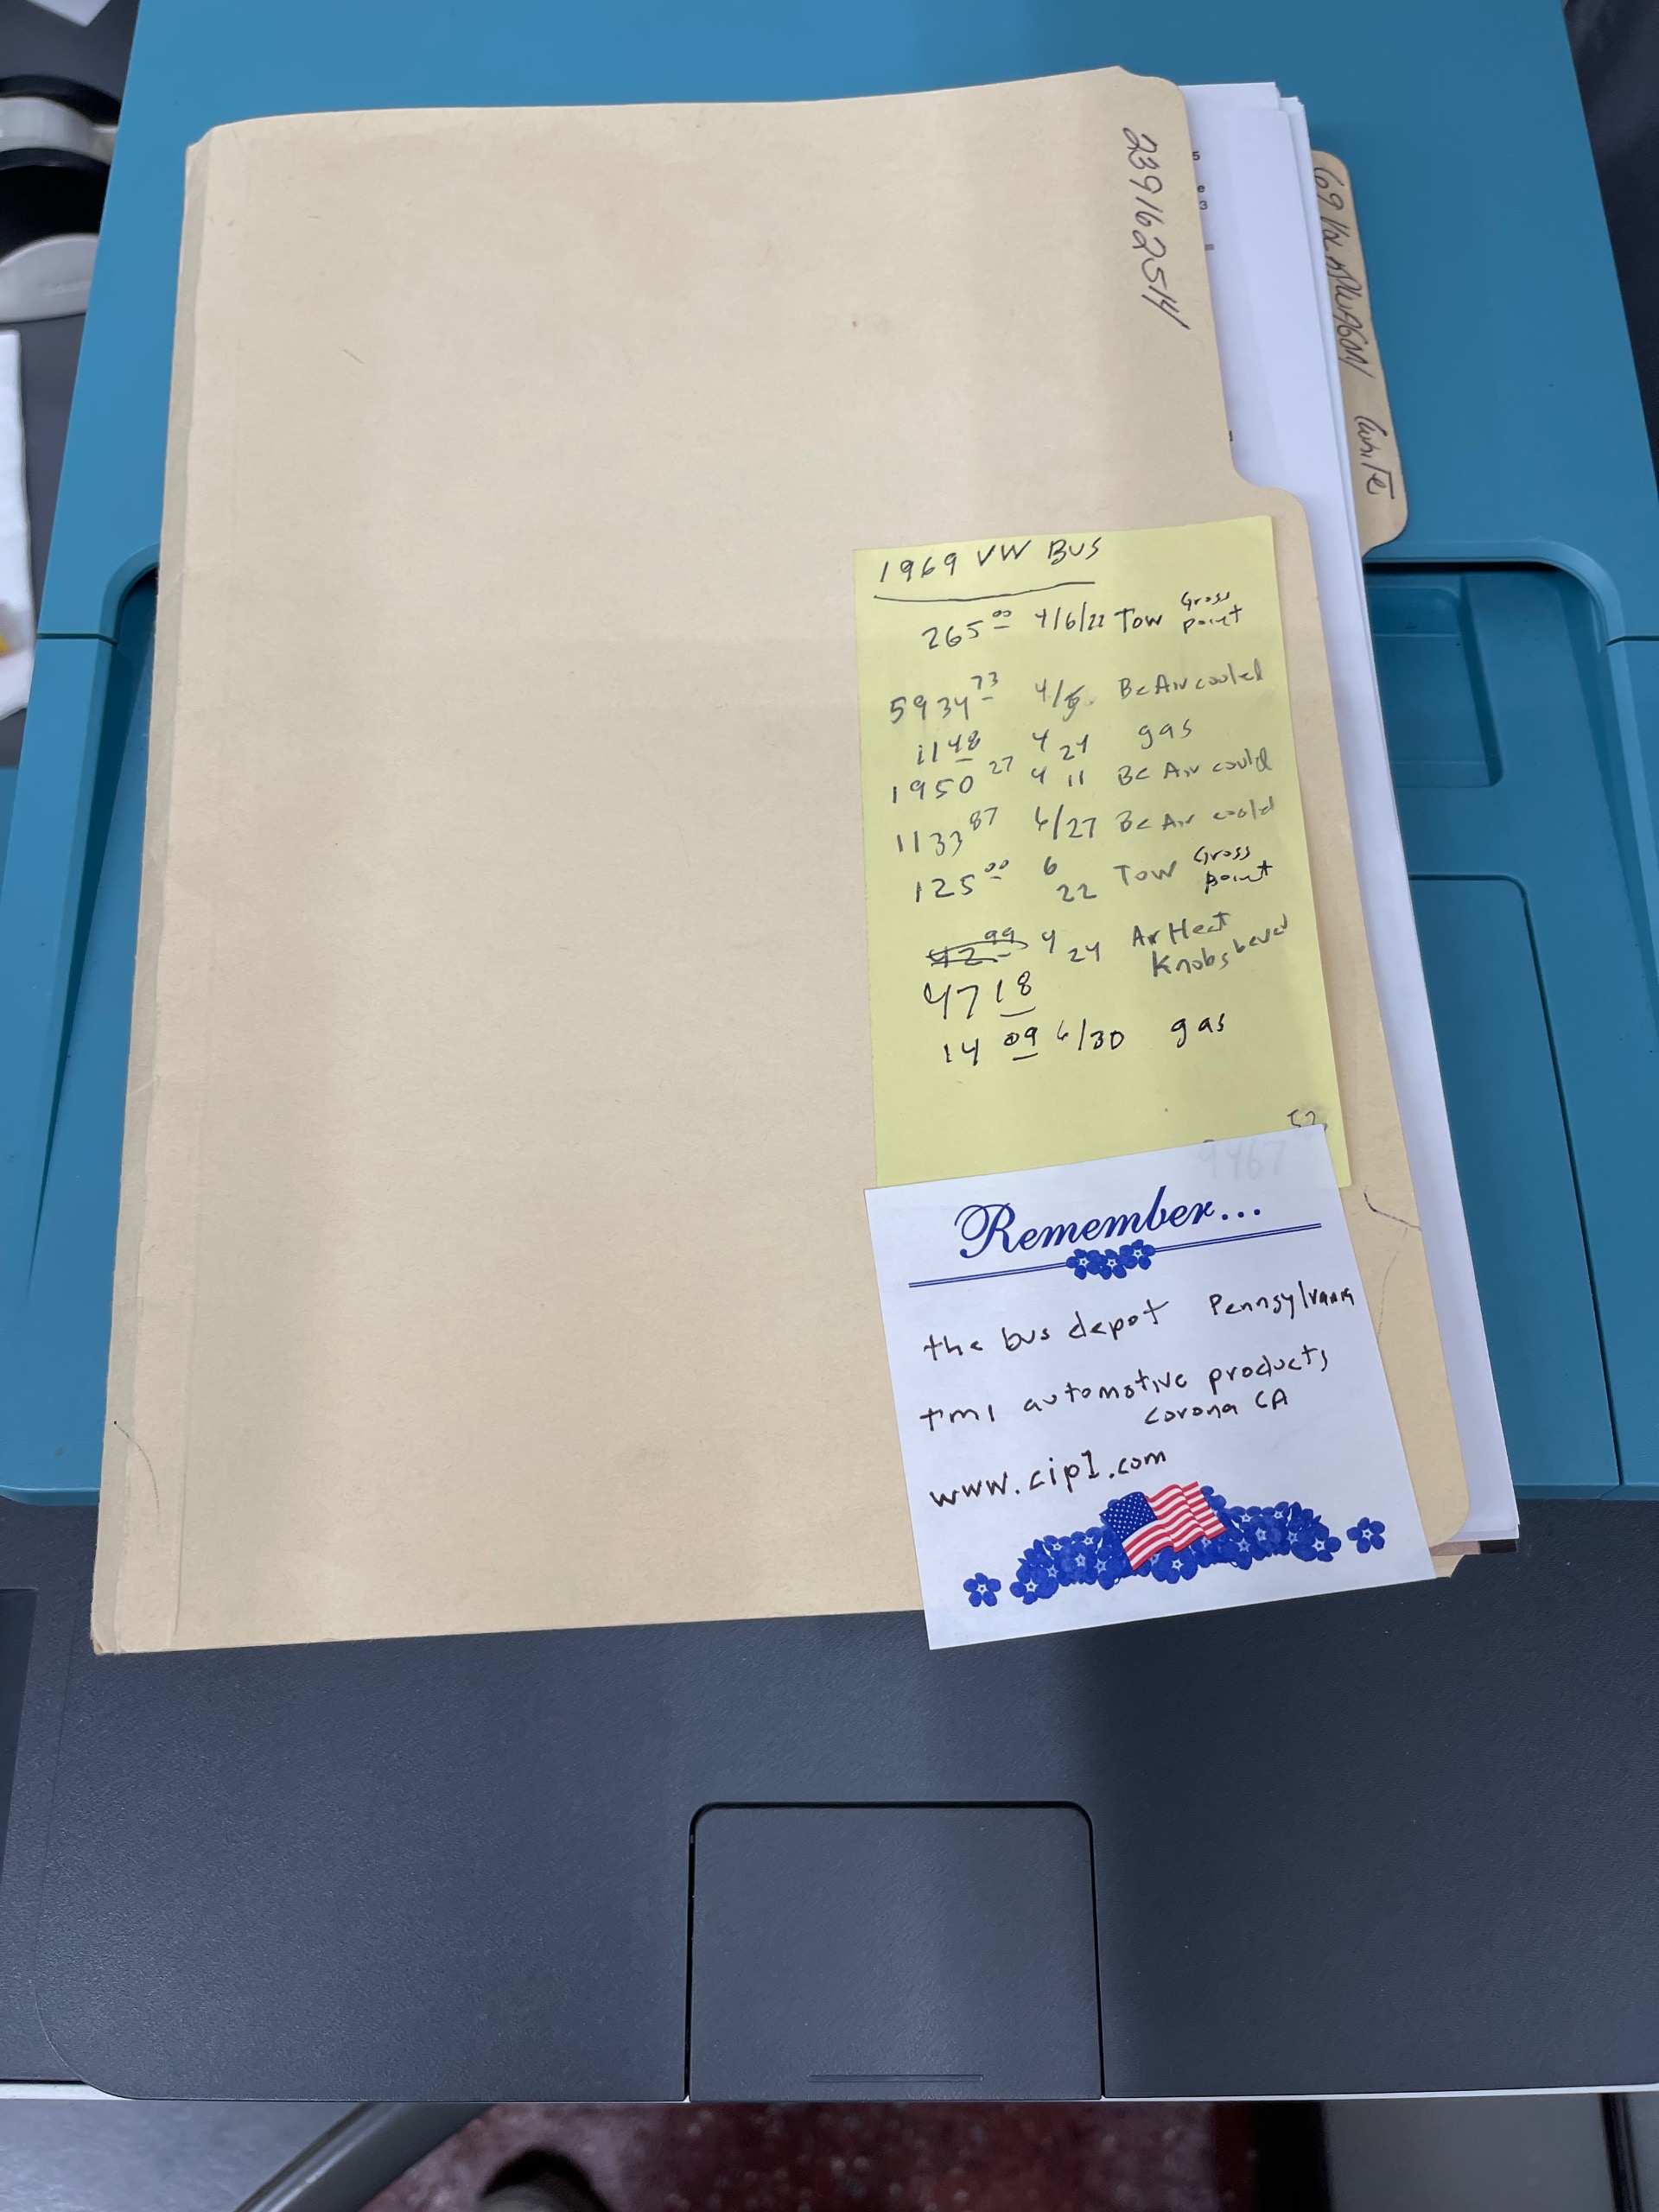 239162514
69 White
1969 VW BUS
265 00 4/6/22 Tow Gross point
5934 73 4/5 Bc Air cooled
11 48 4 24 gas
1950 27 4 11 Bc Air could
1133 87 6/27 Bc Air could
125 00 6 22 Tow Gross point
42 99 4 24 Air Heat
Knobs bevel
47 18
14 09 6/30 gas
52
9467
Remember...
the bus depot Pennsylvania
tmi automotive products
corona CA
www.cip1.com